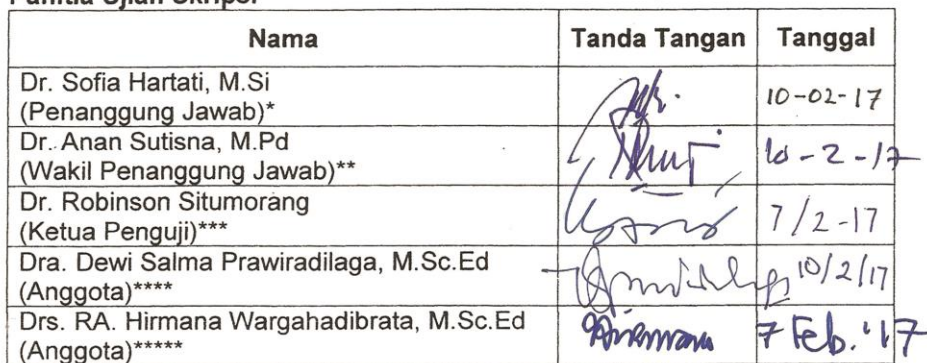 Panitia Ujian Skripsi
Nama Tanda Tangan Tanggal
Dr. Sofia Hartati, M.Si
(Penanggung Jawab)* 10-02-17
Dr. Anan Sutisna, M.Pd
(Wakil Penanggung Jawab)** 10-2-17
Dr. Robinson Situmorang
(Ketua Penguji)*** 7/2-17
Dra. Dewi Salma Prawiradilaga, M.Sc.Ed
(Anggota)**** 10/2/17
Drs. RA. Hirmana Wargahadibrata, M.Sc.Ed
(Anggota)***** 7 Feb. '17